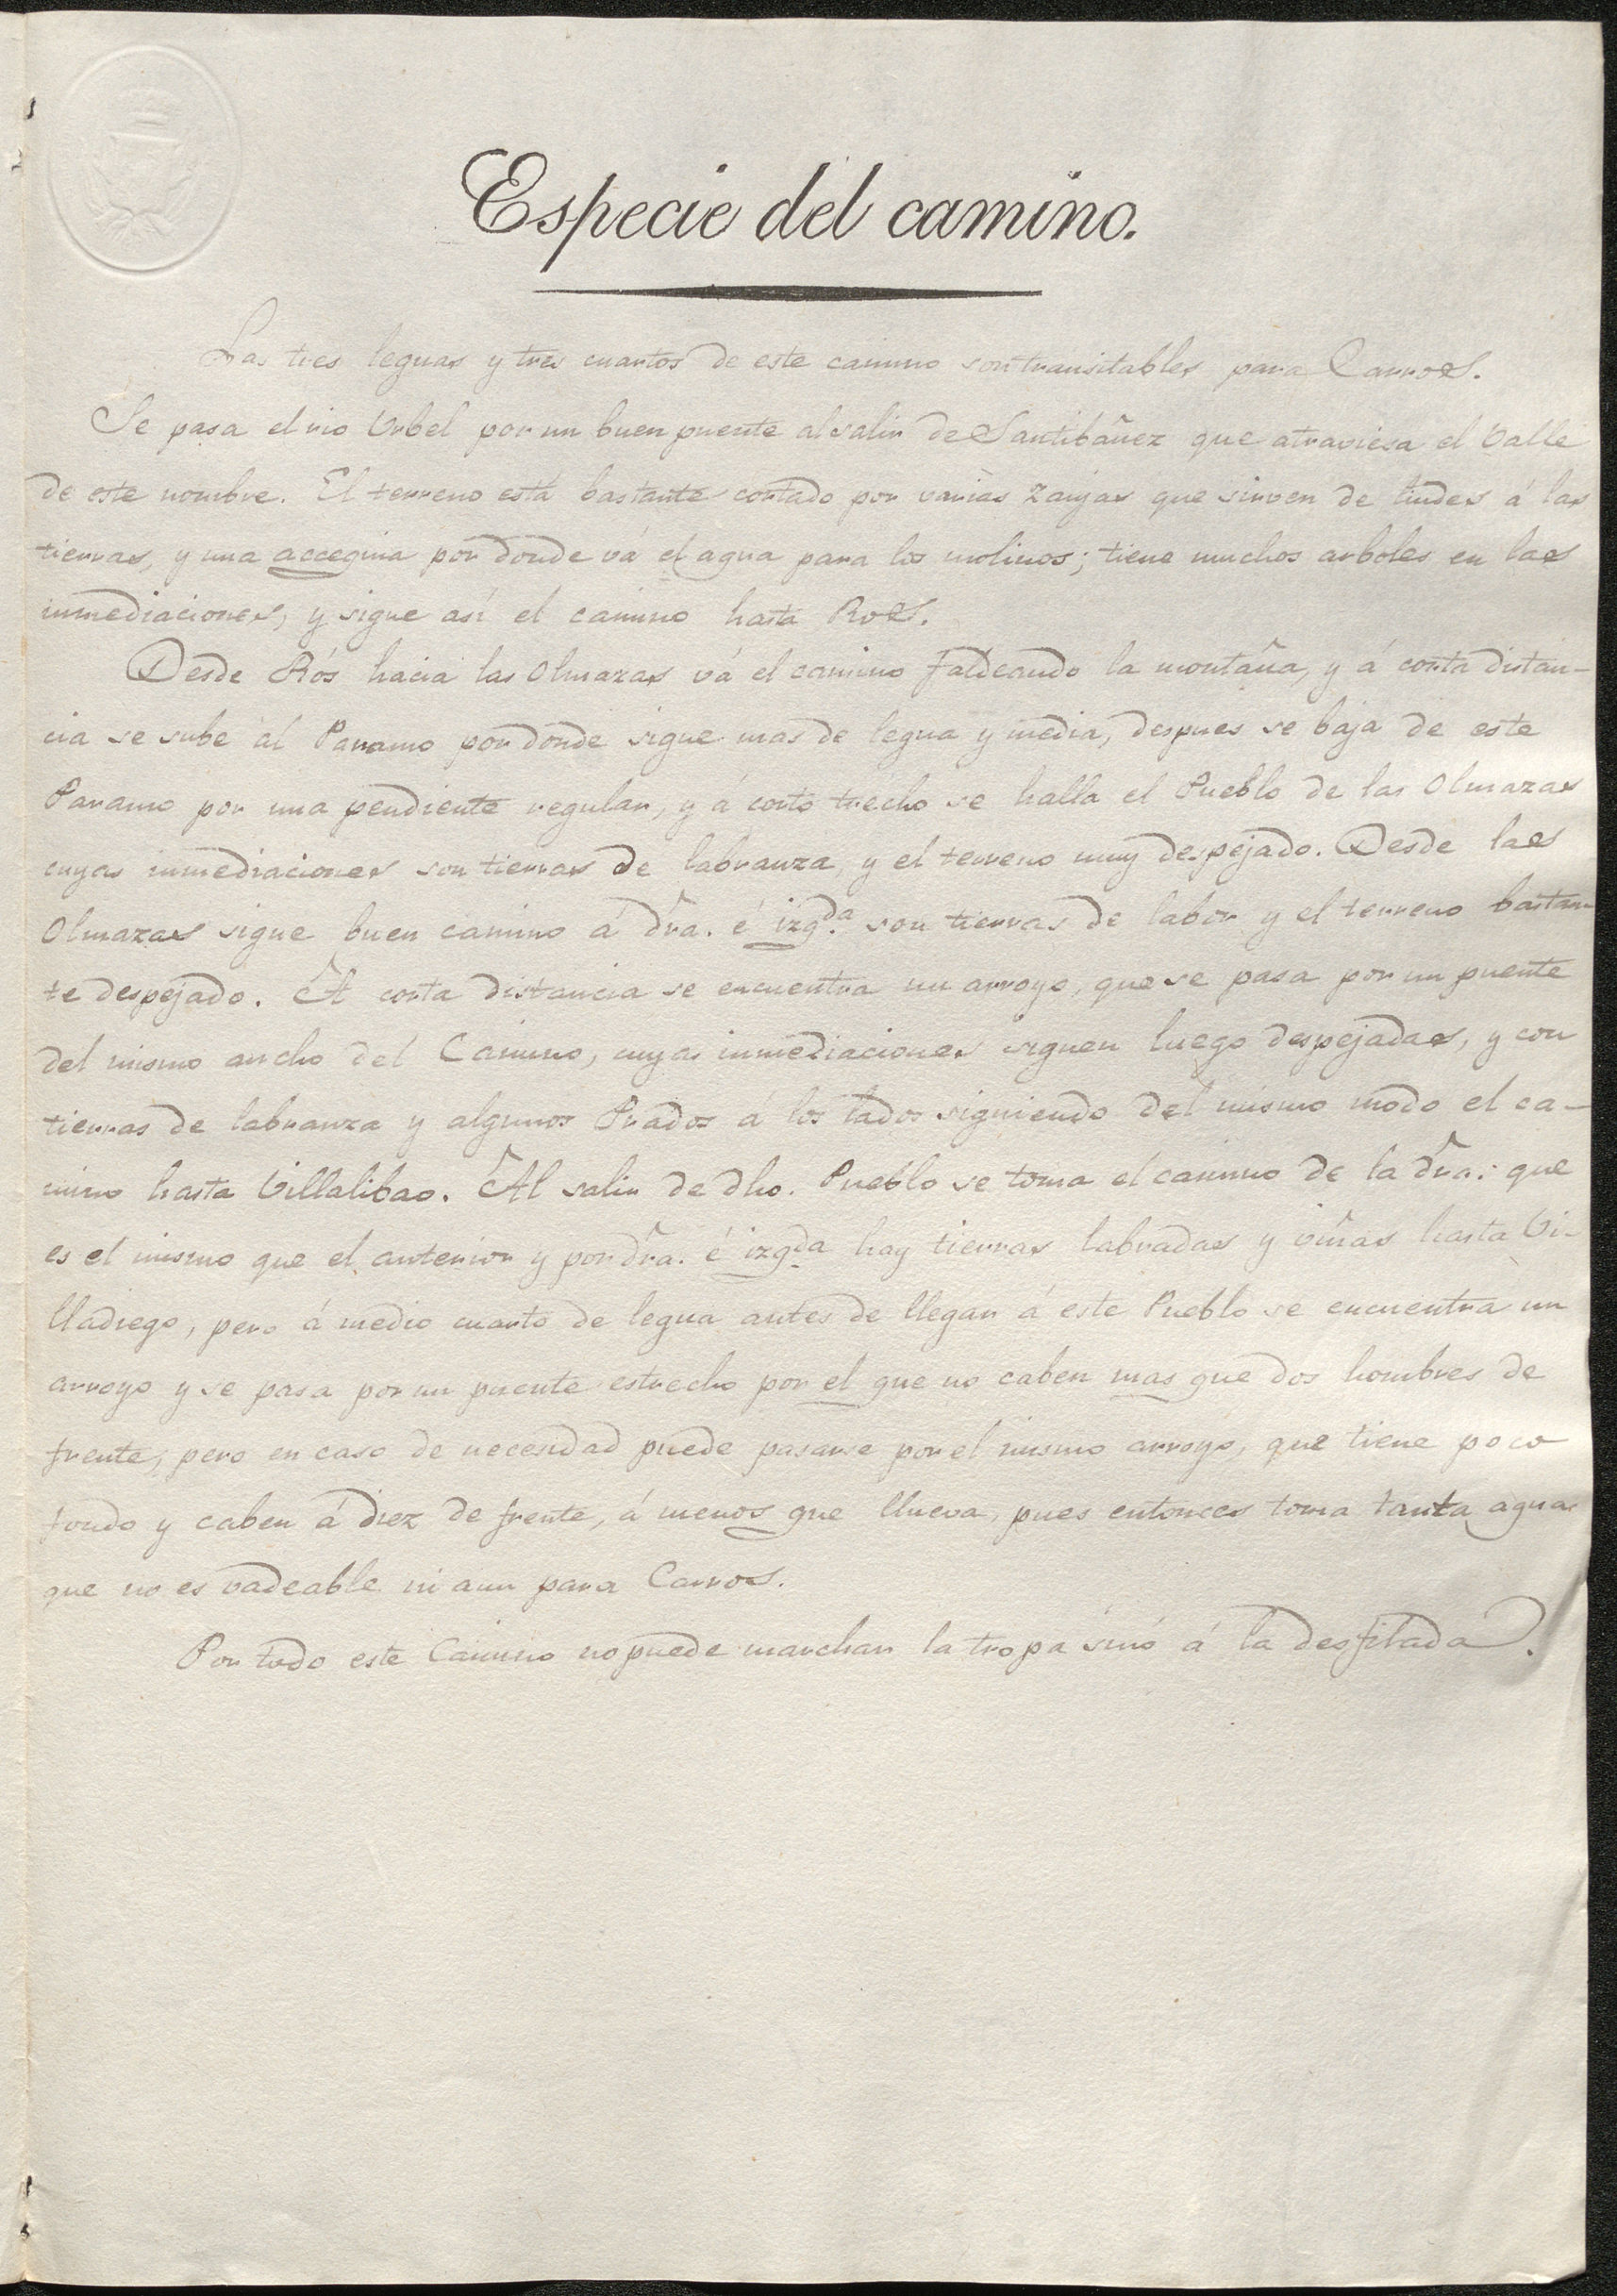 Especie del camino.
Las tres leguas y tres cuartos de este camino son transitables para Carros.
Se pasa el rio Urbel por un buen puente al salir de Santibáñez que atraviesa el Valle
de este nombre. El terreno está bastante cortado por varias zanjas que sirven de lindes á las
tierras, y una accequia por donde vá el agua para los molinos; tiene muchos arboles en las
inmediaciones, y sigue así el camino hasta Ros.
Desde Rós hacia las Olmazas vá el camino faldeando la montaña, y á corta distan-
cia se sube al Paramo por donde sigue mas de legua y media, despues se baja de este
Paramo por una pendiente regular, y á corto trecho se halla el Pueblo de las Olmazas
cuyas inmediaciones son tierras de labranza, y el terreno muy despejado. Desde las
Olmazas sigue buen camino á dra. é izqda. son tierras de labor y el terreno bastan-
te despejado. A corta distancia se encuentra un arroyo, que se pasa por un puente
del mismo ancho del Camino, cuyas inmediaciones siguen luego despejadas, y con
tierras de labranza y algunos Prados á los lados siguiendo del mismo modo el ca-
mino hasta Villalibao. Al salir de dho. Pueblo se toma el camino de la dra. que
es el mismo que el anterior y por dra. é izqda hay tierras labradas y viñas hasta Vi-
lladiego, pero á medio cuarto de legua antes de llegar á este Pueblo se encuentra un
arroyo y se pasa por un puente estrecho por el que no caben mas que dos hombres de
frente, pero en caso de necesidad puede pasarse por el mismo arroyo, que tiene poco
fondo y caben á diez de frente, á menos que llueva, pues entonces toma tanta agua
que no es vadeable ni aun para Carros.
Por todo este Camino no puede marchar la tropa sinó á la desfilada.